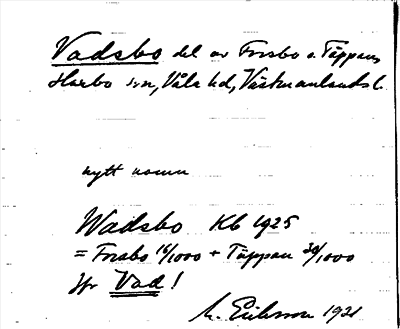 Vadsbo del av Forsbo o. Täppan,
Harbo sn, Våla hd, Västmanlands l.
nytt namn
Wadsbo Kb 1925
= Forsbo 16/1000 + Täppan 30/1000
Jfr Vad!
M. Eriksson 1921